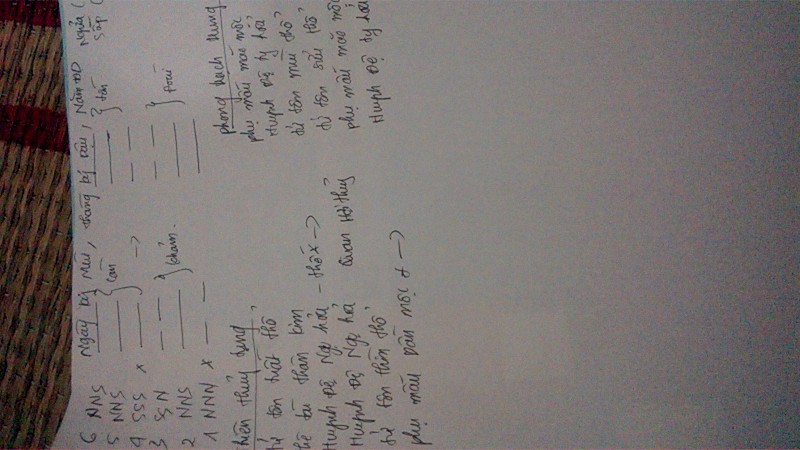 Ngày kỷ mùi, tháng kỷ dậu, Năm Ngửa (
6 NNS càn tốn sấp (
5 NNS
4 SSS x →
3 SSN khảm. Đoài
2 NNS
1 NNN x
thiên thủy tụng phong trạch trung
tử tôn tuất thổ phụ mẫu mão mộc
thê tài thân kim Huynh Đệ tỵ hoả
Huynh Đệ Ngọ hỏa – thế x → tử tôn mùi thổ
Huynh Đệ Ngọ hoả Quan Hợi thủy tử tôn sửu thổ
tử tôn thìn thổ phụ mẫu mão mộc
phụ mẫu Dần mộc x → Huynh Đệ tỵ hỏa